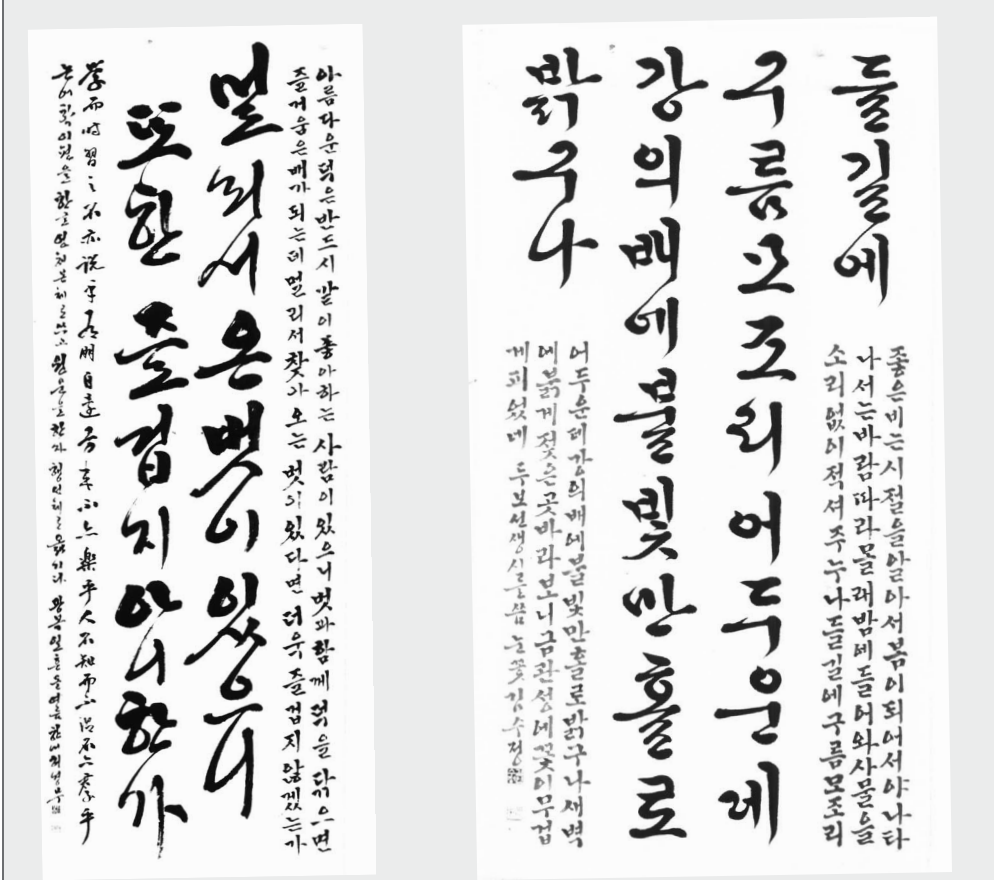 아름다운덕은반드시많이좋아하는 사람이있으니벗과함께 덕을닦으면
즐거움은배가되는데멀리서찾아오는 벗이있다면 더욱즐겁지않겠는가
멀리서온벗이있으니
또한즐겁지아니한가
學而時習之不亦說乎有朋自遠方來不亦樂乎人不知而不慍不亦君子乎
논어학이편을한글
들길에
구름모조리어두운데
강의배에불빛만홀로
밝구나
좋은비는시절을알아서봄이되어서야나타
나서는바람따라몰래밤에들어와사물을
소리없이적셔주누나들길에구름모조리
어두운데강의배에불빛만홀로밝구나새벽
에붉게젖은곳바라보니금관성에꽃이무겁
게피었네 두보선생시를씀 눈꽃김수정